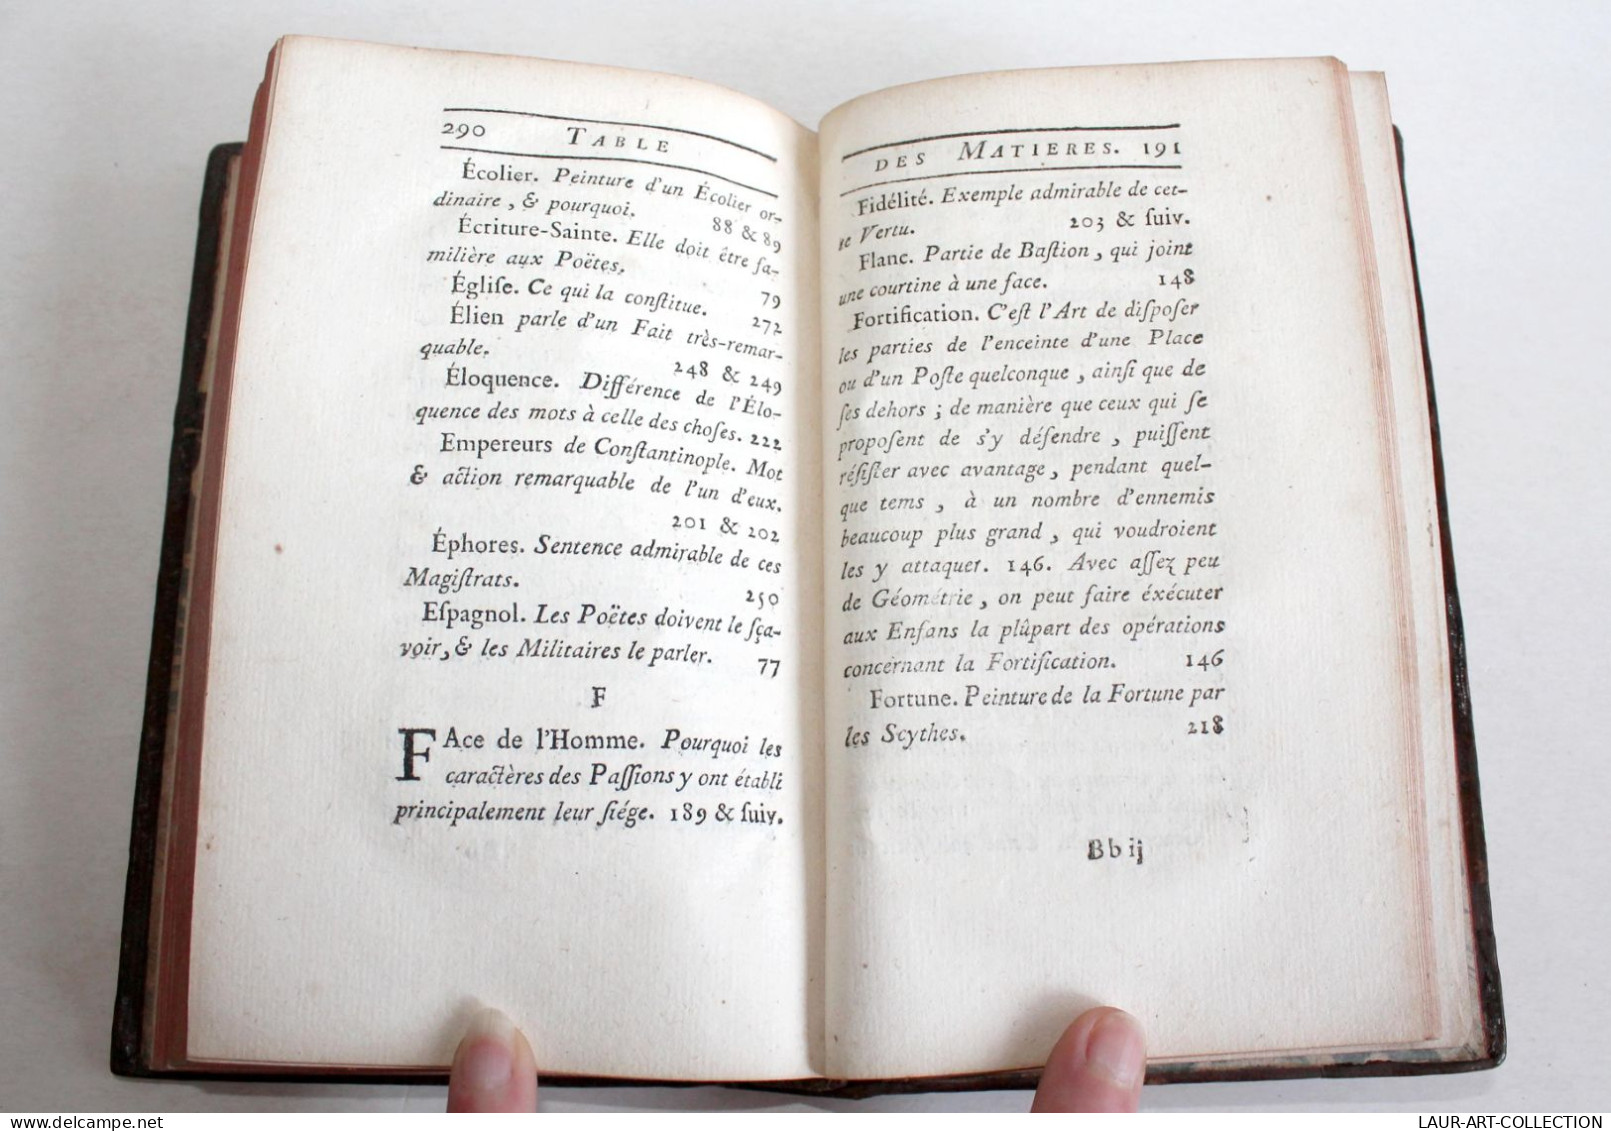 290 TABLE
Écolier. Peinture d'un Écolier or-
dinaire, & pourquoi. 88 & 89
Écriture-Sainte. Elle doit être fa-
milière aux Poëtes. 79
Égliſe. Ce qui la conſtitue. 272
Élien parle d'un Fait très-remar-
quable. 248 & 249
Éloquence. Différence de l'Élo-
quence des mots à celle des choſes. 222
Empereurs de Conſtantinople. Mot
& action remarquable de l'un d'eux.
201 & 202
Éphores. Sentence admirable de ces
Magiſtrats. 250
Eſpagnol. Les Poëtes doivent le ſça-
voir, & les Militaires le parler. 77
F
FAce de l'Homme. Pourquoi les
caractères des Paſſions y ont établi
principalement leur ſiége. 189 & ſuiv.
DES MATIERES. 191
Fidélité. Exemple admirable de cet-
te Vertu. 203 & ſuiv.
Flanc. Partie de Baſtion, qui joint
une courtine à une face. 148
Fortification. C'eſt l'Art de diſpoſer
les parties de l'enceinte d'une Place
ou d'un Poſte quelconque, ainſi que de
ſes dehors; de manière que ceux qui ſe
propoſent de s'y défendre, puiſſent
réſiſter avec avantage, pendant quel-
que tems, à un nombre d'ennemis
beaucoup plus grand, qui voudroient
les y attaquer. 146. Avec aſſez peu
de Géométrie, on peut faire éxécuter
aux Enfans la plûpart des opérations
concernant la Fortification. 146
Fortune. Peinture de la Fortune par
les Scythes. 218
Bbij
LAUR-ART-COLLECTION